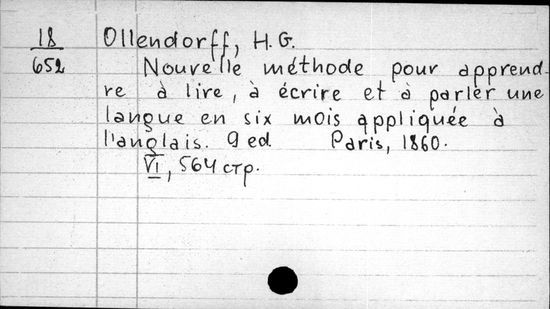 18
652
Ollendorff, H.G.
Nouvelle méthode pour apprend-
re à lire, à écrire et à parler une
langue en six mois appliquée à
l'anglais. 9 ed. Paris, 1860.
VI, 564 стр.